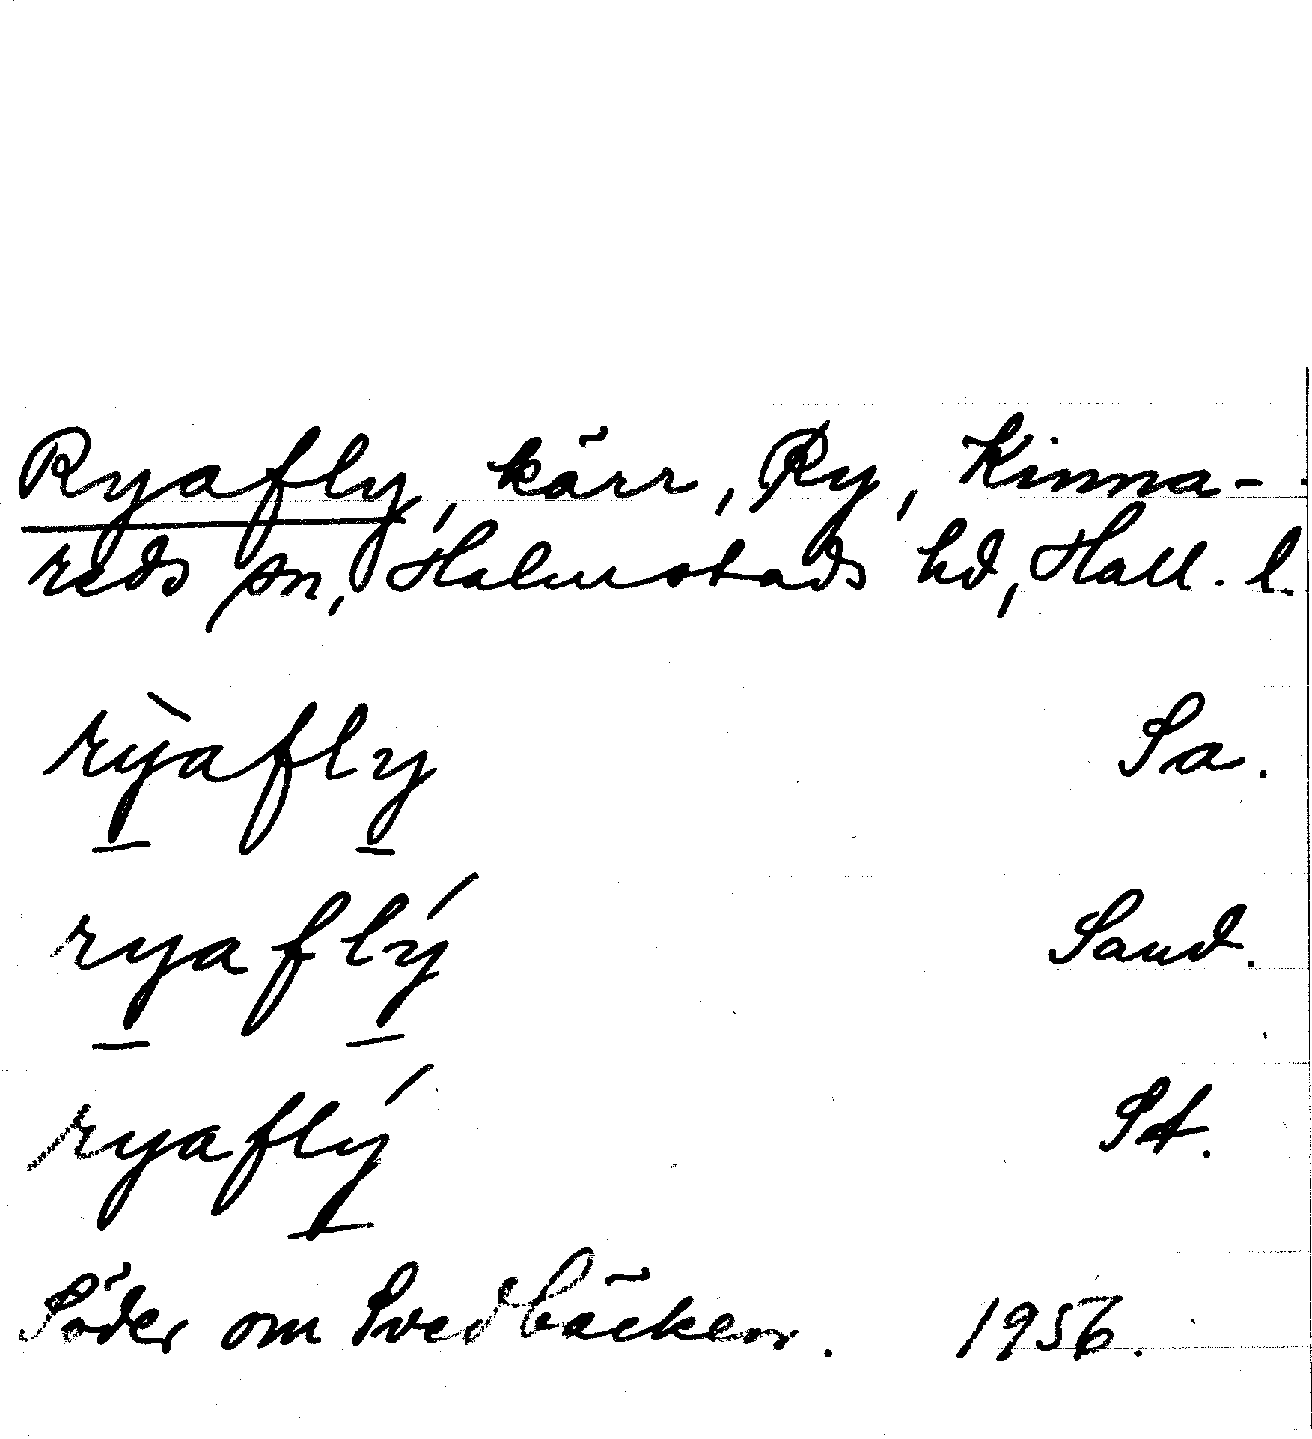 Ryafly, kärr, Ry, Kinna-
reds sn, Halmstads hd, Hall. l.
rỳafly Sa.
ryaflý Sand.
ryaflý St.
Söder om Svedbäcken. 1956.